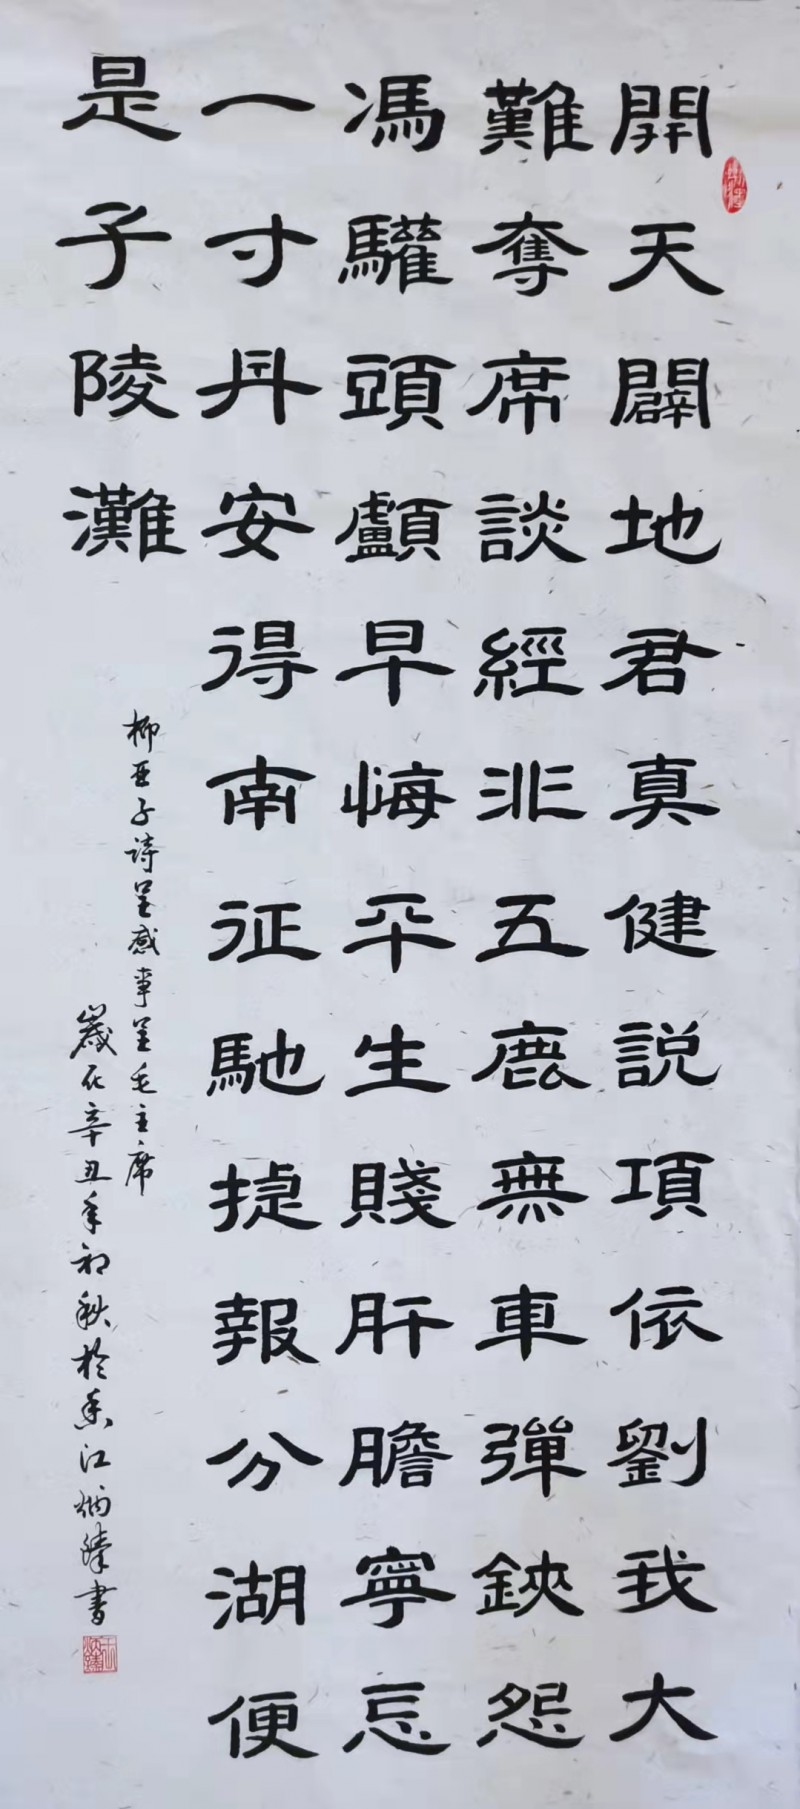 開天闢地君真健説項依劉我大
難奪席談經非五鹿無車彈鋏怨
馮驩頭顱早悔平生賤肝膽寧忘
一寸丹安得南征馳捷報分湖便
是子陵灘
柳亞子詩呈感事呈毛主席
歲在辛丑年初秋於香江炳臻書